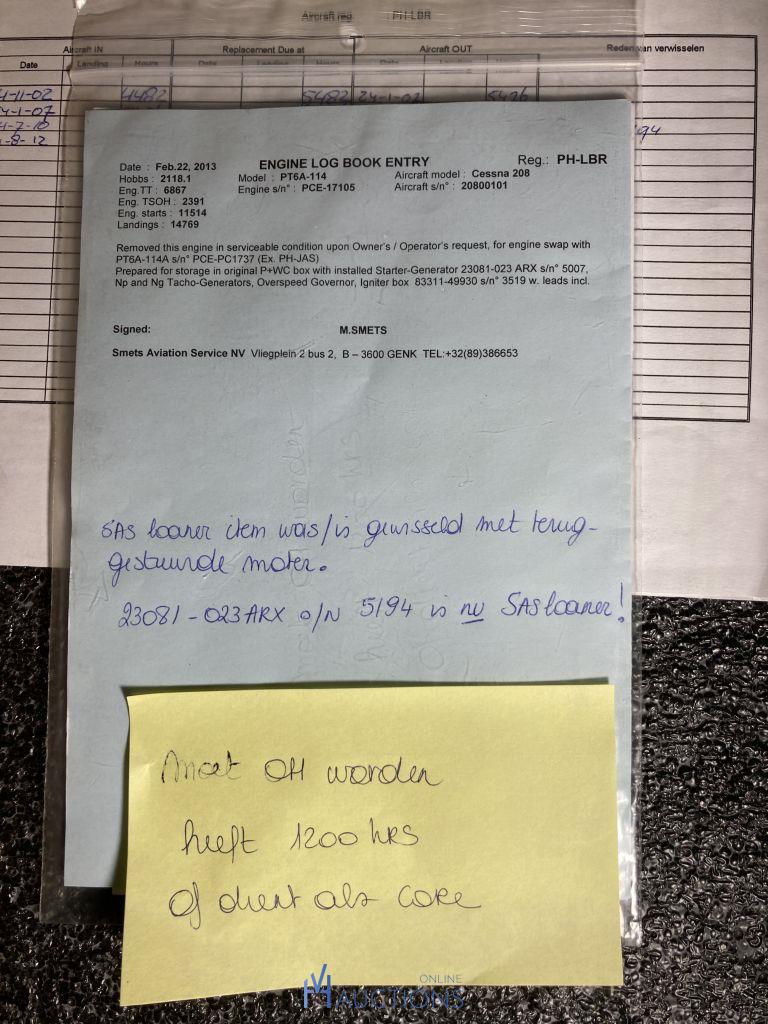 Aircraft reg : PH-LBR
Aircraft IN Replacement Due at Aircraft OUT Reden van verwisselen
Date Landing Hours Date Landing Hours Date
4482 5482 24-1-07 5426
-1-07
-7-10
-8-12
Date : Feb.22, 2013 ENGINE LOG BOOK ENTRY Reg.: PH-LBR
Hobbs : 2118.1 Model : PT6A-114 Aircraft model : Cessna 208
Eng.TT : 6867 Engine s/n° : PCE-17105 Aircraft s/n° : 20800101
Eng. TSOH : 2391
Eng. starts : 11514
Landings : 14769
Removed this engine in serviceable condition upon Owner's / Operator's request, for engine swap with
PT6A-114A s/n° PCE-PC1737 (Ex. PH-JAS)
Prepared for storage in original P+WC box with installed Starter-Generator 23081-023 ARX s/n° 5007,
Np and Ng Tacho-Generators, Overspeed Governor, Igniter box 83311-49930 s/n° 3519 w. leads incl.
Signed: M.SMETS
Smets Aviation Service NV Vliegplein 2 bus 2, B – 3600 GENK TEL:+32(89)386653
SAS loaner item was/is gewisseld met terug-
gestuurde motor.
23081-023ARX s/N 5194 is nu SAS loaner!
Moet OH worden
heeft 1200 hrs
of dient als core
ONLINE
AUCTIONS